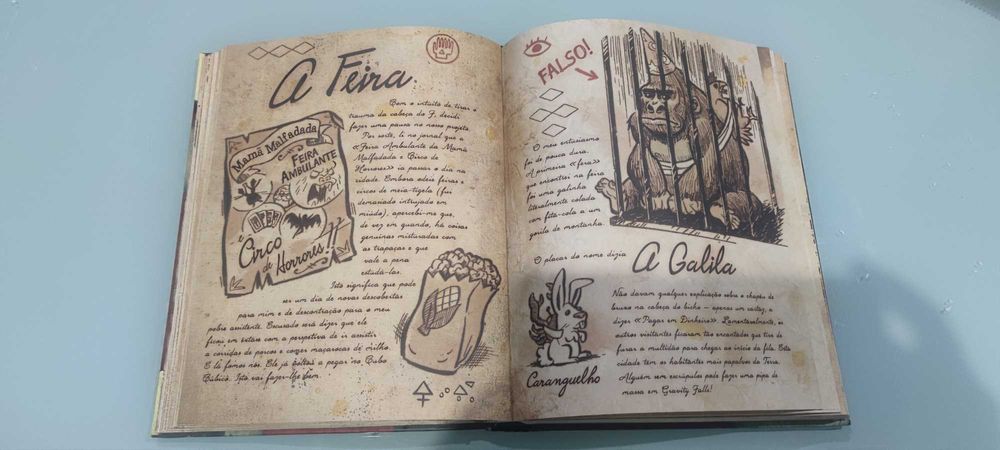 A Feira
Com o intuito de tirar o
trauma da cabeça do F, decidi
fazer uma pausa no nosso projeto.
Por sorte, li no jornal que a
«Feira Ambulante da Mamã
Malfadada e Circo de
Horrores» ia passar o dia na
cidade. Embora odeie feiras e
circos de meia-tigela (fui
demasiado intrujado em
miúdo), apercebi-me que,
de vez em quando, há coisas
genuínas misturadas com
as trapaças e que
vale a pena
estudá-las.
Mamã Malfadada
FEIRA
AMBULANTE
e
Circo
de Horrores!!
Isto significa que pode
ser um dia de novas descobertas
para mim e de descontração para o meu
pobre assistente. Escusado será dizer que ele
ficou em êxtase com a perspetiva de ir assistir
a corridas de porcos e comer maçarocas de milho.
E lá fomos nós. Ele já voltou a pegar no Cubo
Cúbico. Isto vai fazer-lhe bem.
FALSO!
O meu entusiasmo
foi de pouca dura.
A primeira «fera»
que encontrei na feira
foi uma galinha
literalmente colada
com fita-cola a um
gorila de montanha.
O placar do nome dizia
A Galila
Caranguelho
Não davam qualquer explicação sobre o chapéu de
bruxo na cabeça do bicho – apenas um cartaz, a
dizer «Pagar em Dinheiro». Lamentavelmente, os
outros visitantes ficaram tão encantados que tive de
furar a multidão para chegar ao início da fila. Esta
cidade tem os habitantes mais papalvos da Terra.
Alguém sem escrúpulos pode fazer uma pipa de
massa em Gravity Falls!